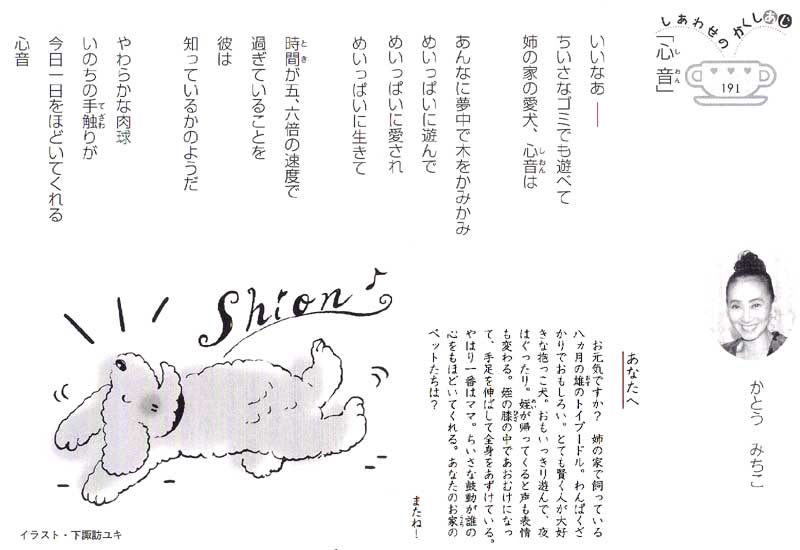 しあわせのかくしあじ
「心音」
しおん
191
いいなあ――
ちいさなゴミでも遊べて
姉の家の愛犬、心音は
しおん
あんなに夢中で木をかみかみ
めいっぱいに遊んで
めいっぱいに愛され
めいっぱいに生きて
時間が五、六倍の速度で
とき
過ぎていることを
彼は
知っているかのようだ
やわらかな肉球
いのちの手触りが
てざわ
今日一日をほどいてくれる
心音
かとう みちこ
あなたへ
お元気ですか? 姉の家で飼っている
八ヵ月の雄のトイプードル。わんぱくざ
かりでおもしろい。とても賢く人が大好
きな抱っこ犬。おもいっきり遊んで、夜
はぐったり。姪が帰ってくると声も表情
も変わる。姪の膝の中であおむけになっ
て、手足を伸ばして全身をあずけている。
やはり一番はママ。ちいさな鼓動が誰の
心をもほどいてくれる。あなたのお家の
ペットたちは?
またね!
Shion♪
イラスト・下諏訪ユキ